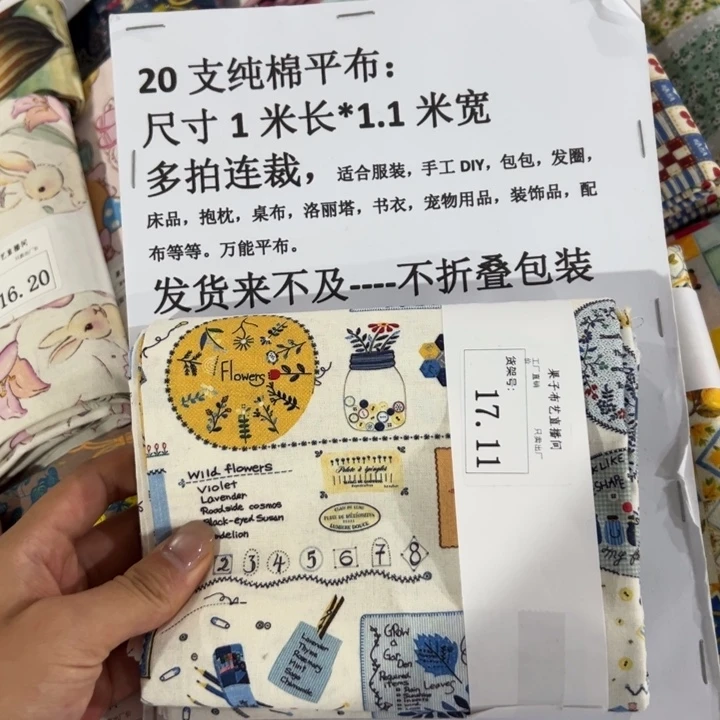 20 支纯棉平布：
尺寸 1 米长*1.1 米宽
多拍连裁，适合服装，手工 DIY，包包，发圈，
床品，抱枕，桌布，洛丽塔，书衣，宠物用品，装饰品，配
布等等。万能平布。
发货来不及----不折叠包装
16. 20
Flowers
Wild flowers
Violet
Lavender
Roadside cosmos
Black-eyed Susan
delion
2 3 4 5 6 7 8
Lavender
Thyme
Rosemary
Mint
Sage
Chamomile
GROW
a
Gar
Den
Required
items
Rain
Leaves
果子布艺直播间
工厂直销
只卖出厂
货架号：
17. 11
LIKE
SHAPE
my